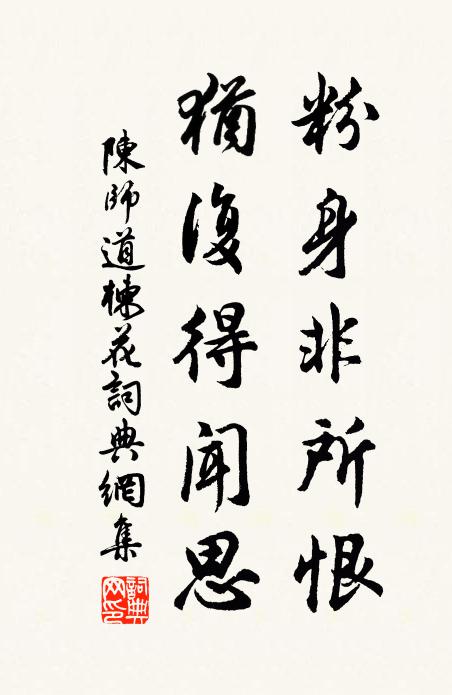 粉身非所恨
猶復得聞思
陳師道棟花詞典網集
詞典網印